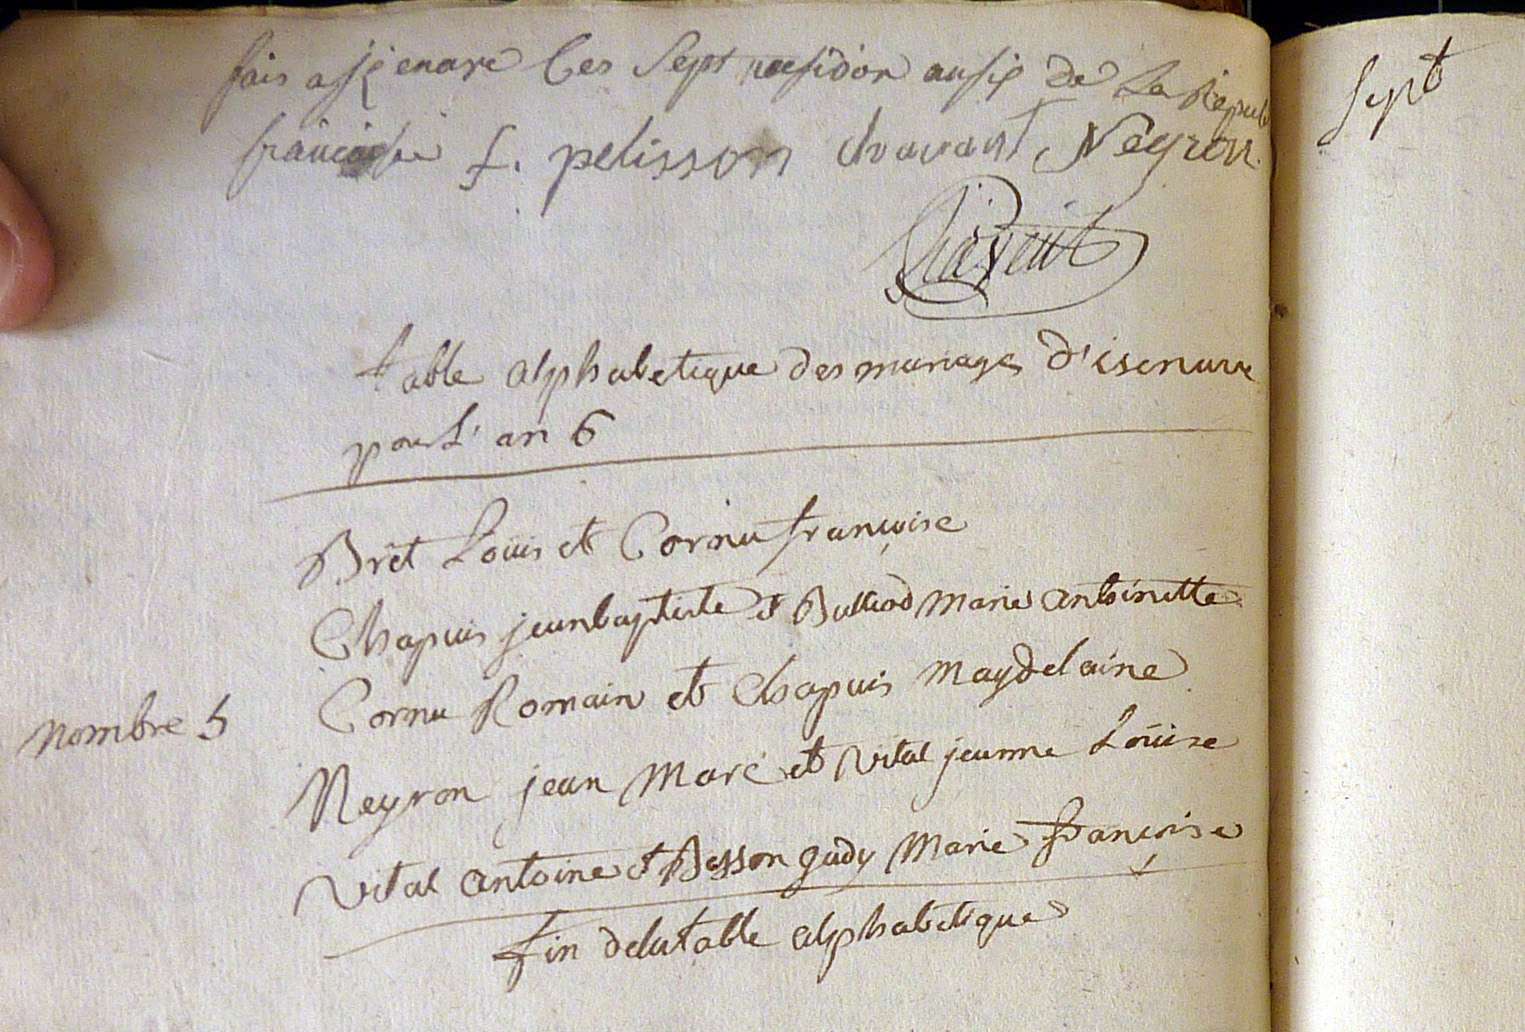 fais a isenave Ces Sept messidor ansix de La Repub
francoise f. pelisson chavant Neyron
table alphabetique des mariages d'isenave
pour L'an 6
Bret Loüis et Cornu françoise
Chapuis jeanbaptiste et Bulliod marie antoinette
Cornu Romain et Chapuis Maydelaine
nombre 5
Neyron jean Marc et Vital jeanne Loüise
Vital antoine et Besson gudy Marie françoise
fin delatable alphabetique
Sept